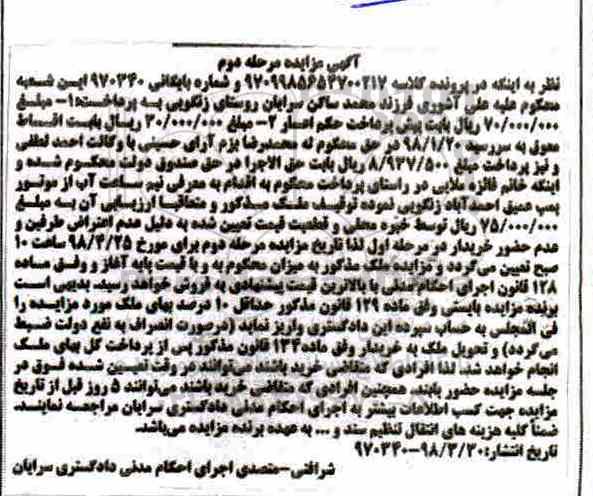 آگهی مزایده مرحله دوم
نظر به اینکه در پرونده کلاسه ۹۷۰۹۹۸۵۶۵۴۷۰۰۲۱۷ و شماره بایگانی ۹۷۰۳۴۰ این شعبه
محکوم علیه علی آشوری فرزند محمد ساکن سرایان روستای زنگویی به پرداخت:۱- مبلغ
۷۰/۰۰۰/۰۰۰ ریال بابت پیش پرداخت حکم اعسار ۲- مبلغ ۳۰/۰۰۰/۰۰۰ ریال بابت اقساط
معوق به سررسید ۹۸/۱/۲۰ در حق محکوم له محمدرضا بزم آرای حسینی با وکالت احمد لطفی
و نیز پرداخت مبلغ ۸/۹۳۷/۵۰۰ ریال بابت حق الاجرا در حق صندوق دولت محکوم شده و
اینکه خانم فائزه ملایی در راستای پرداخت محکوم به اقدام به معرفی نیم ساعت آب از موتور
پمپ عمیق احمدآباد زنگویی نموده توقیف ملک مذکور و متعاقبا ارزیابی آن به مبلغ
۷۵/۰۰۰/۰۰۰ ریال توسط خبره محلی و قطعیت قیمت تعیین شده به دلیل عدم اعتراض طرفین و
عدم حضور خریدار در مرحله اول لذا تاریخ مزایده مرحله دوم برای مورخ ۹۸/۴/۲۵ ساعت ۱۰
صبح تعیین می‌گردد و مزایده ملک مذکور به میزان محکوم به و با قیمت پایه آغاز و وفق ماده
۱۲۸ قانون اجرای احکام مدنی با بالاترین قیمت پیشنهادی به فروش خواهد رسید. بدیهی است
برنده مزایده بایستی وفق ماده ۱۲۹ قانون مذکور حداقل ۱۰ درصد بهای ملک مورد مزایده را
فی المجلس به حساب سپرده این دادگستری واریز نماید (درصورت انصراف به نفع دولت ضبط
می‌گردد) و تحویل ملک به خریدار وفق ماده۱۳۴ قانون مذکور پس از پرداخت کل بهای ملک
انجام خواهد شد. لذا افرادی که متقاضی خرید باشند می‌توانند در وقت تعیین شده فوق در
جلسه مزایده حضور یابند همچنین افرادی که متقاضی خرید باشند می‌توانند ۵ روز قبل از تاریخ
مزایده جهت کسب اطلاعات بیشتر به اجرای احکام مدنی دادگستری سرایان مراجعه نمایند.
ضمناً کلیه هزینه های انتقال تنظیم سند و ... به عهده برنده مزایده می‌باشد.
تاریخ انتشار:۹۸/۳/۳۰-۹۷۰۳۴۰
شرافتی-متصدی اجرای احکام مدنی دادگستری سرایان